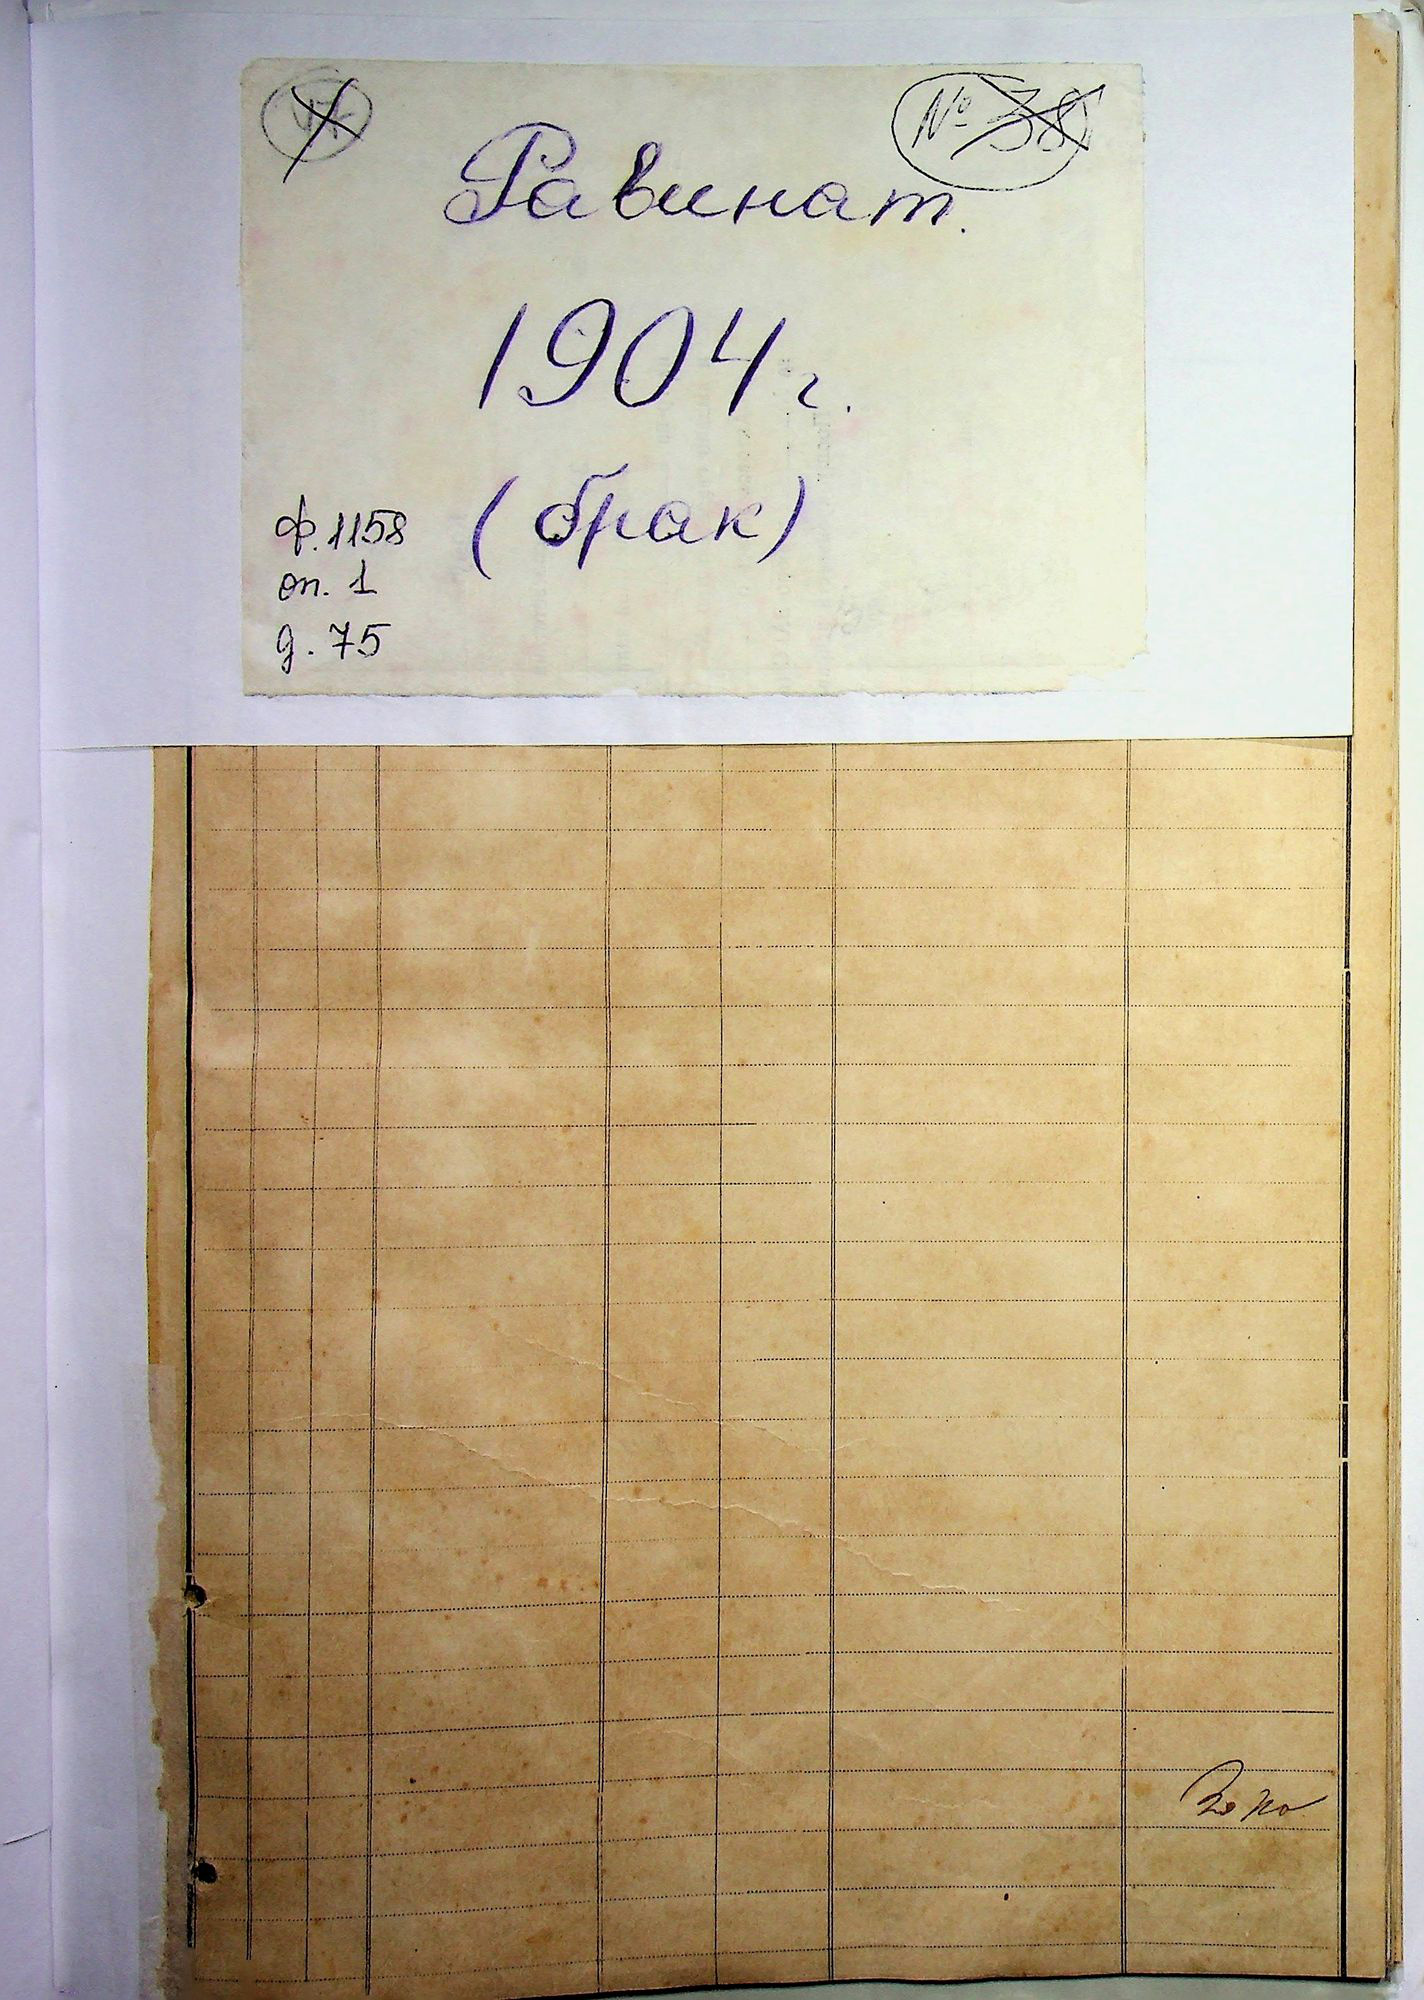 № 38
Равинат.
1904 г.
(брак)
ф. 1158
оп. 1
д. 75